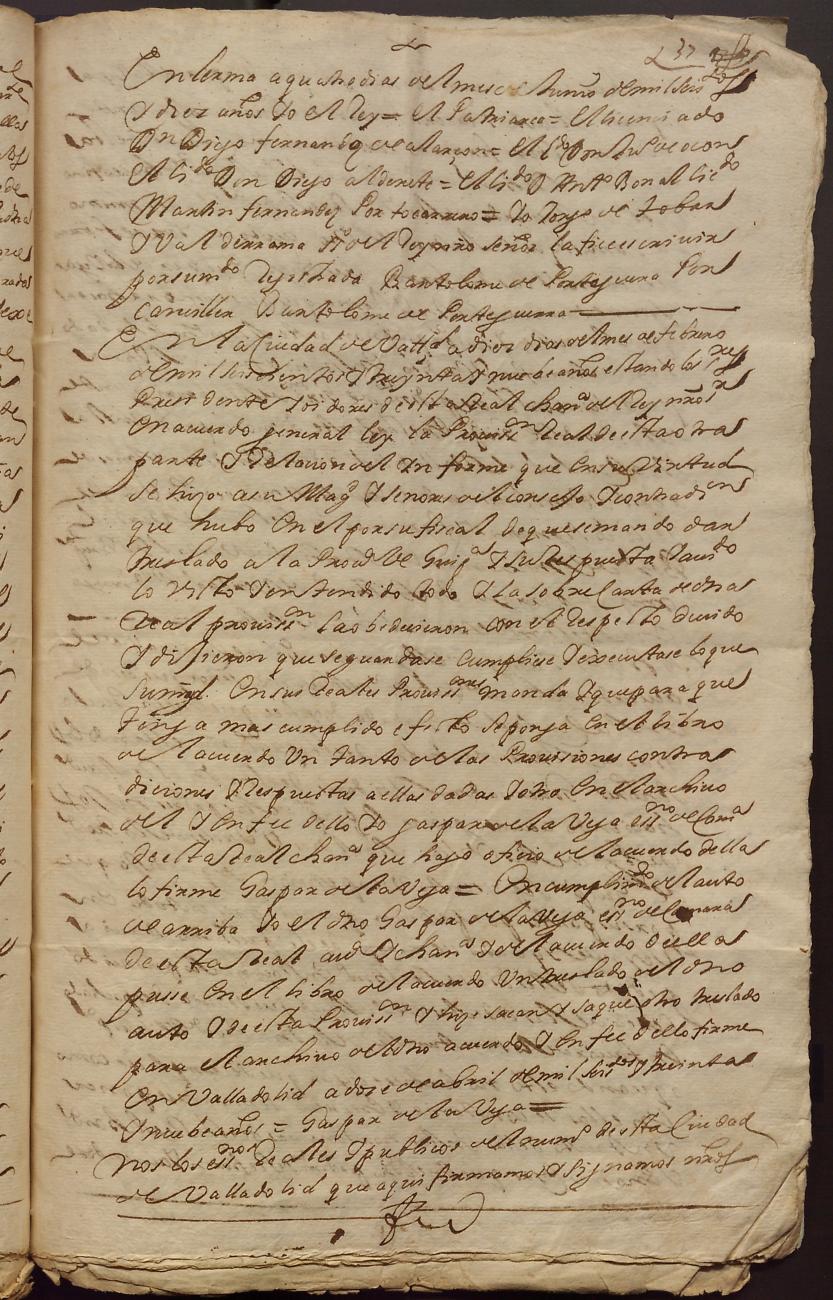 237
En lerma a quatro dias del mes de Junio de mil seisos
Y diez años Yo el Rey = el Patriarca = el licenciado
Dn Diego fernando de alarcon = el ldo Don
el lido Don Diego alderete = el lido D Anto Bonal licdo
Martin fernandez Portocarrero = Yo Jorge de tobar
Y Valderrama sro del Rey nro señor la fice escrivir
por su mdo Rejistrada Bartolome de Porteguera Por
canciller Bartolome de Porteguera
En la Ciudad de Valld a diez dias del mes de febrero
de mil seiscientos Y treynta Y nuebe años estando los sres
Presidente Y oidores de esta Real chana del Rey nro sr
en acuerdo general ley la Provision Real de esta otra
parte Y Relacion del Ynforme que en su Virtud
se hizo a su Magd Y señores del consejo Y contradicion
que hubo en el por su fiscal de que se mando dar
traslado a la Prova de Guipa Y su Respuesta Y aviendo
lo visto Y entendido todo Y la sobre Carta de dha
Real provision la obedecieron con el Respeto devido
Y dijeron que se guardase cumpliese Y executase lo que
su magd en sus Reales Provisiones manda Y que para que
tenga mas cumplido efecto se ponga en el libro
del acuerdo Un tanto de las Provisiones contra
diciones Y Respuestas a ellas dadas Y otro en el archivo
del Y en fee dello Yo gaspar de la Vega essno de Cama
de esta Real chana que hago oficio del acuerdo della
lo firme Gaspar de la Vega = En cumplimdo del auto
de arriba Yo el dho Gaspar de la Vega essno de Camara
de esta Real auda Y chana Y del acuerdo de ella
puse en el libro del acuerdo Un traslado del dho
auto Y de esta Provision Y hize sacar Y saque otro traslado
para el archivo del dho acuerdo Y en fee dello firme
en Valladolid a doze de abril de mil seisos Y treinta
Y nuebe años = Gaspar de la Vega =
Nos los essnos Reales Y publicos del numo de esta Ciudad
de Valladolid que aqui firmamos Y signamos nros